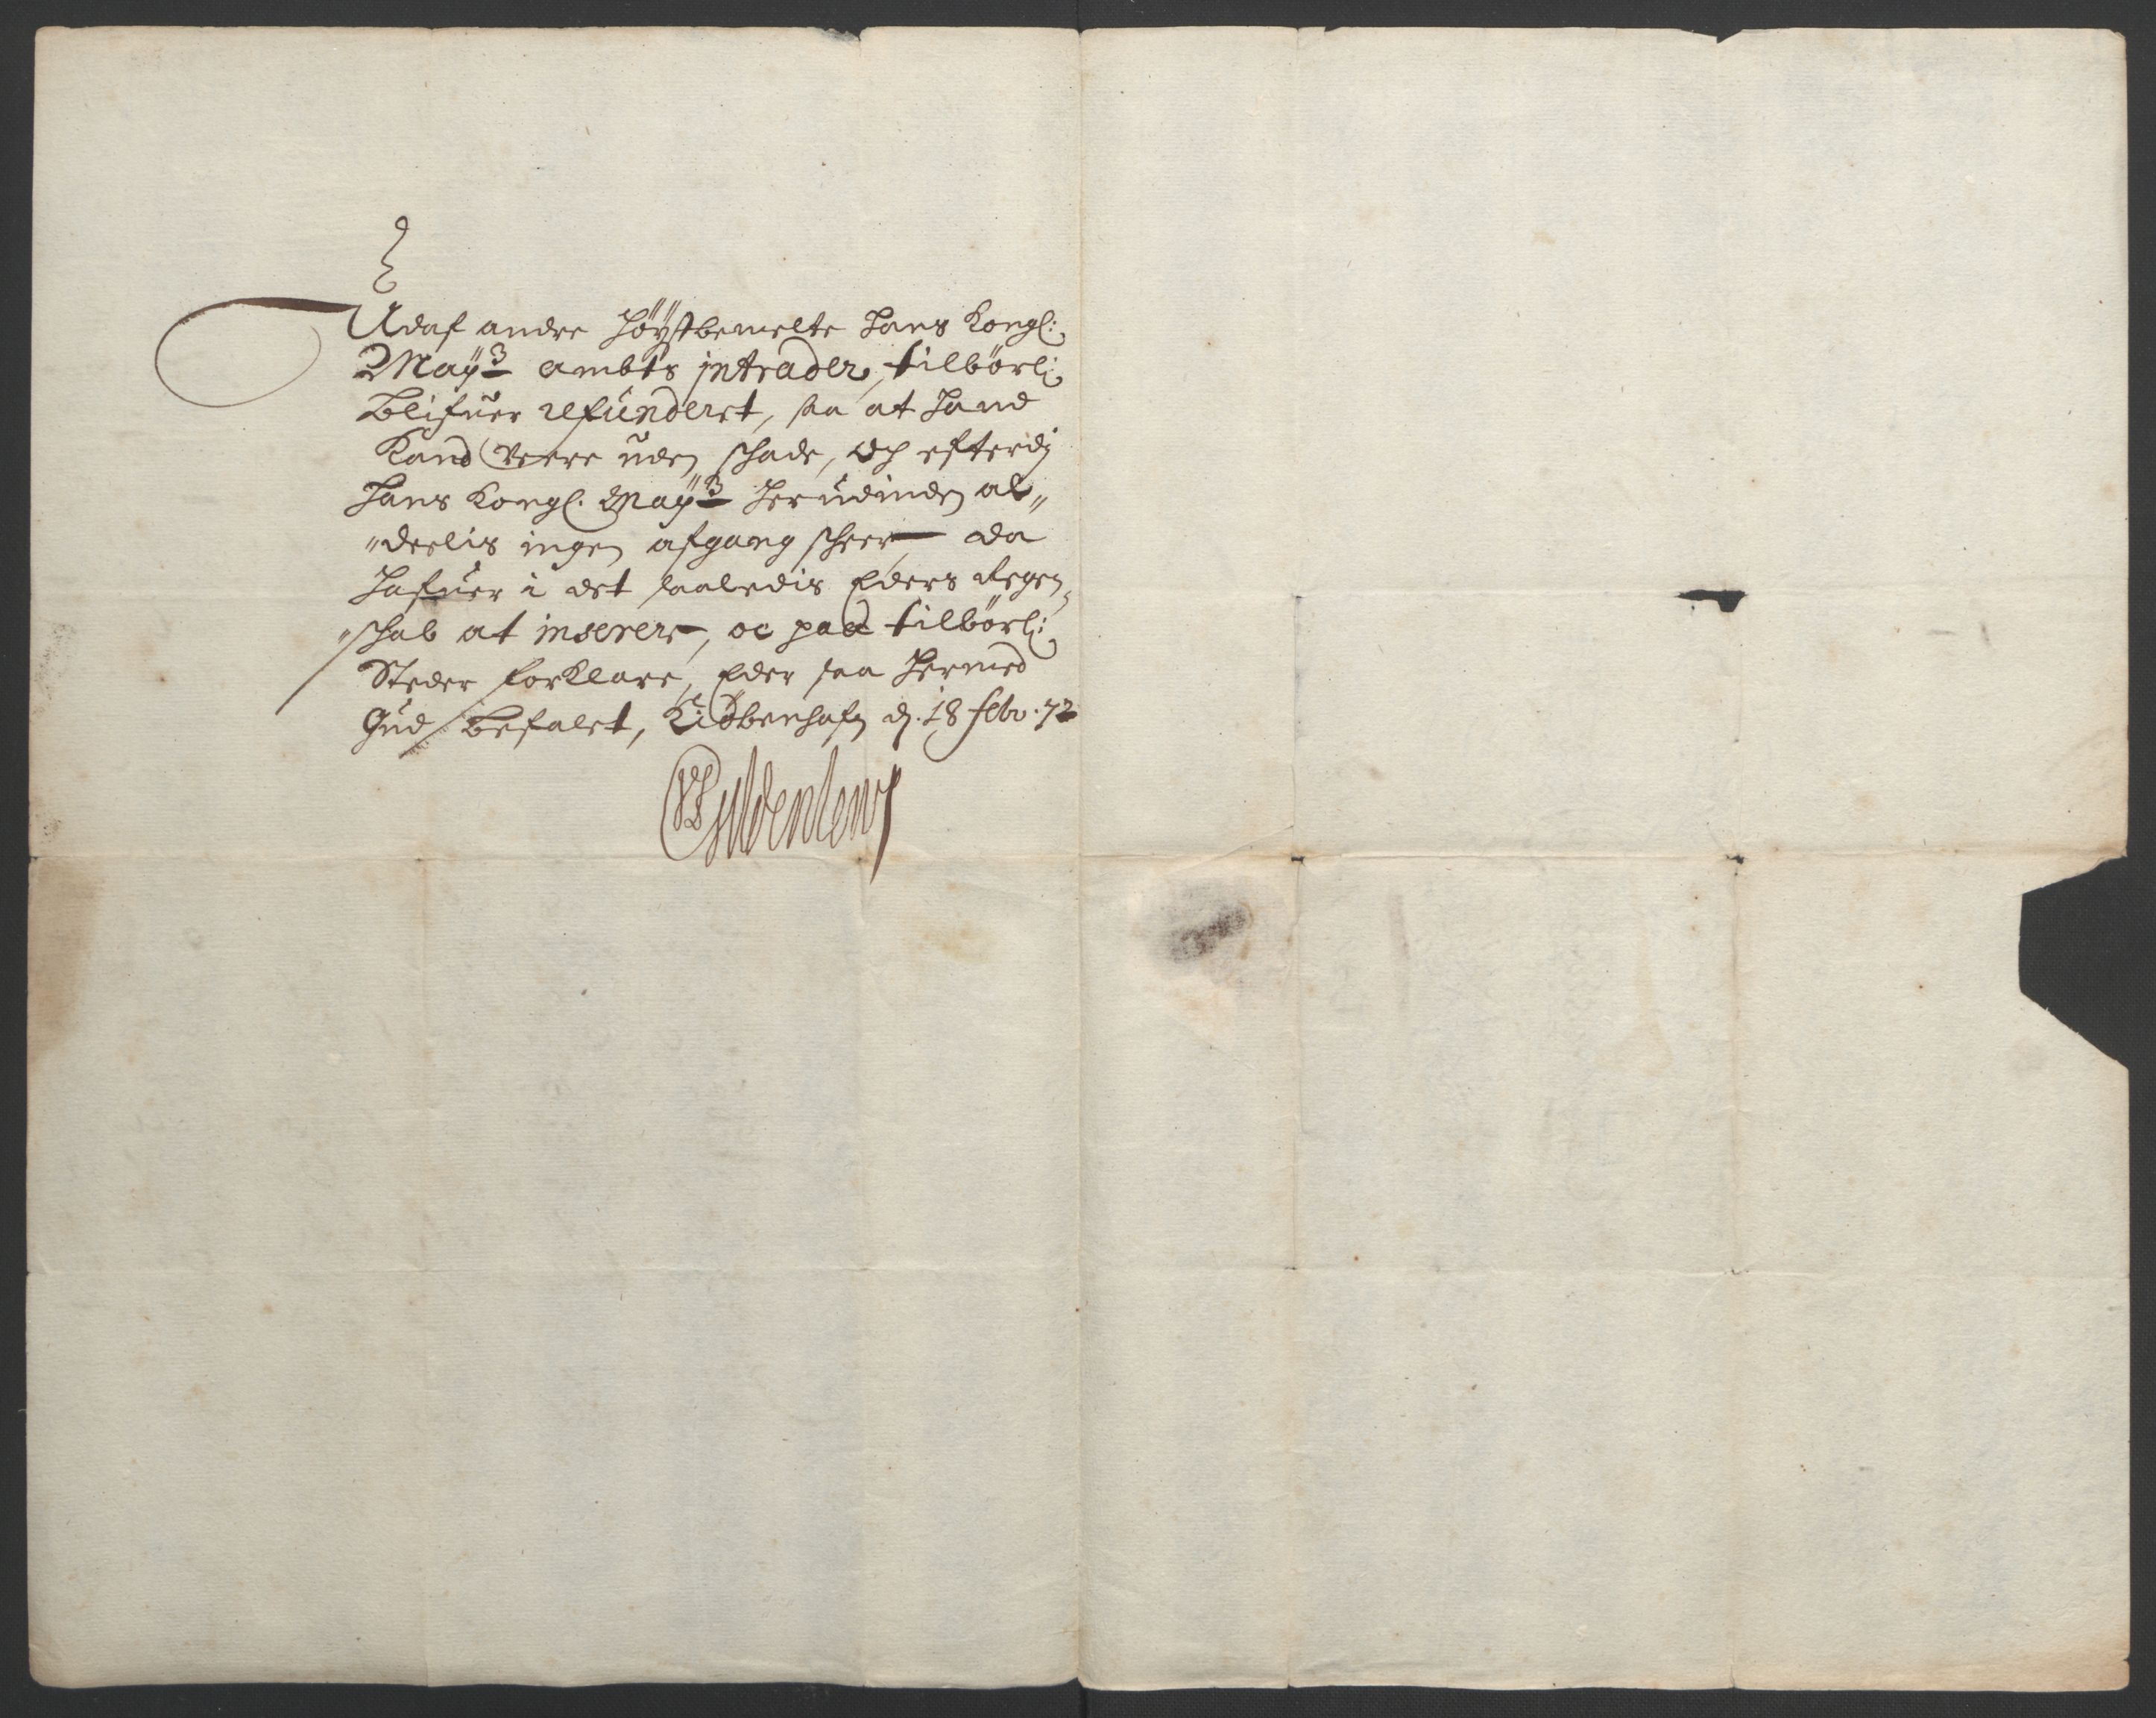 Udaf andre Höÿstbemelte Hans Kongl:
Maÿ:tz ambts intrader, tilbörli:
blifuer refundert, saa at Hand
Kand were uden schade, och efterdj
Hans Kongl: Maÿ:tz Herudinden al„
„deelis ingen afgang scheer, da
Hafuer i det saaledis Eders Regen„
„schab at inserere, oc paa tilbörl:
Steder forklare, Eder saa Hermed
Gud befalet, Kiöbenhafn d. 18 febr. 72
UFGyldenlew